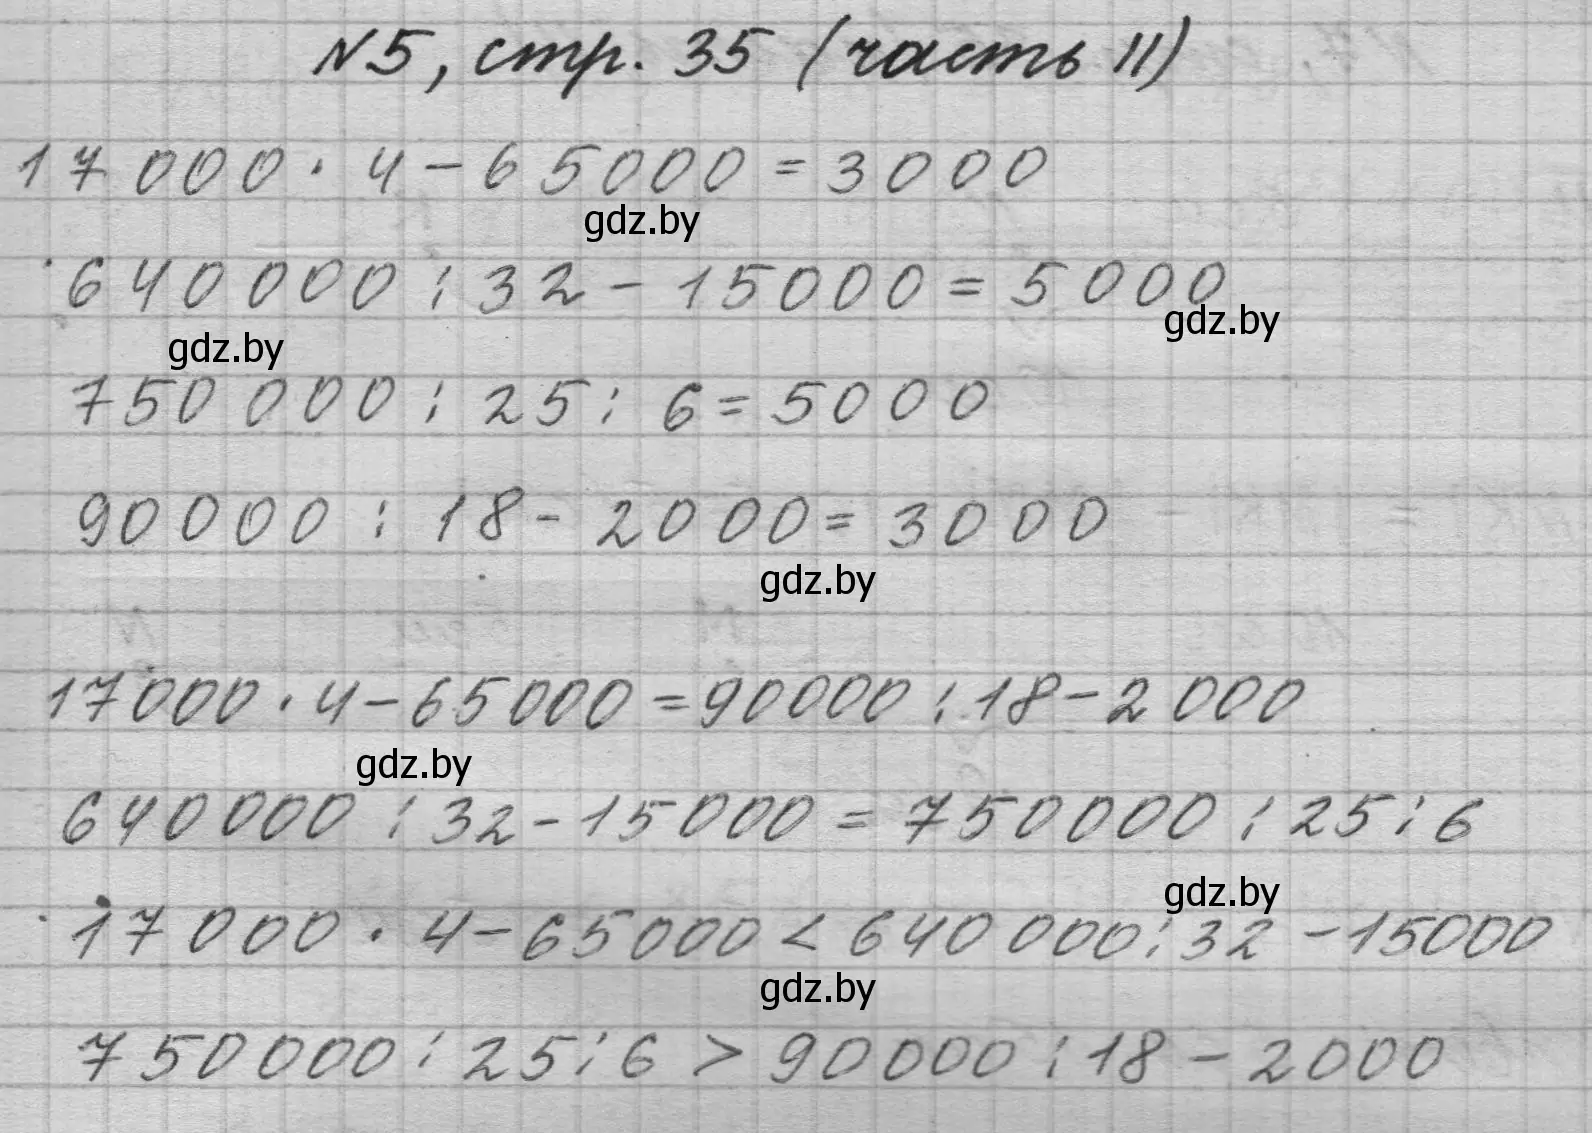 №5, стр. 35 (часть II)
17000 · 4 - 65000 = 3000
gdz.by
640000 : 32 - 15000 = 5000
gdz.by
gdz.by
750000 : 25 : 6 = 5000
90000 : 18 - 2000 = 3000
gdz.by
17000 · 4 - 65000 = 90000 : 18 - 2000
gdz.by
640000 : 32 - 15000 = 750000 : 25 : 6
gdz.by
17000 · 4 - 65000 < 640000 : 32 - 15000
gdz.by
750000 : 25 : 6 > 90000 : 18 - 2000